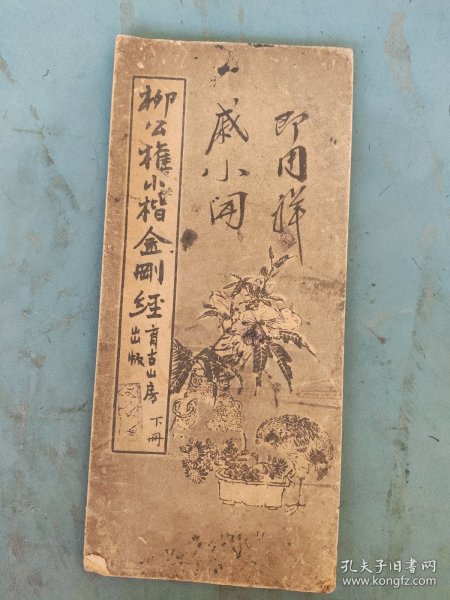 柳公權小楷金剛經
育古山房
出版
下冊
戚小開
即用祥
孔夫子旧书网
www.kongfz.com